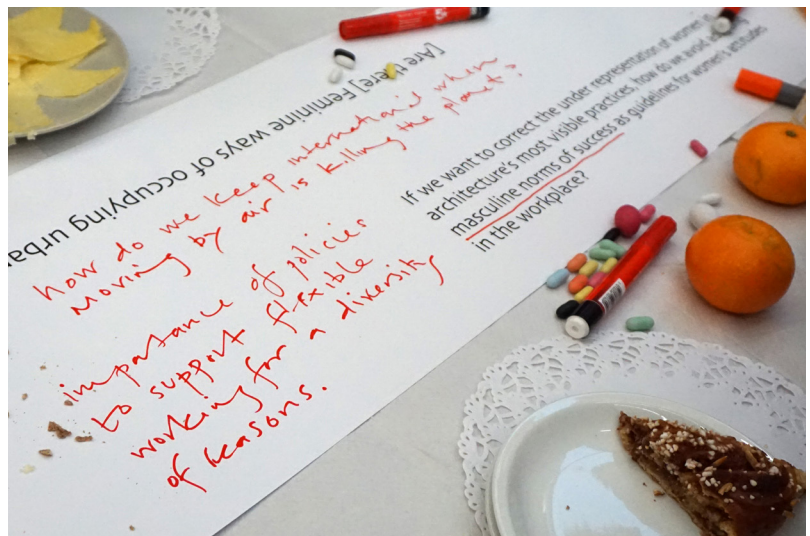 [Are there] Feminine ways of occupying urba
how do we keep internation's when
moving by air is killing the planet?
importance of policies
to support flexible
working for a diversity
of reasons.
If we want to correct the under representation of women in
architecture's most visible practices, how do we avoid
masculine norms of success as guidelines for women's attitudes
in the workplace?